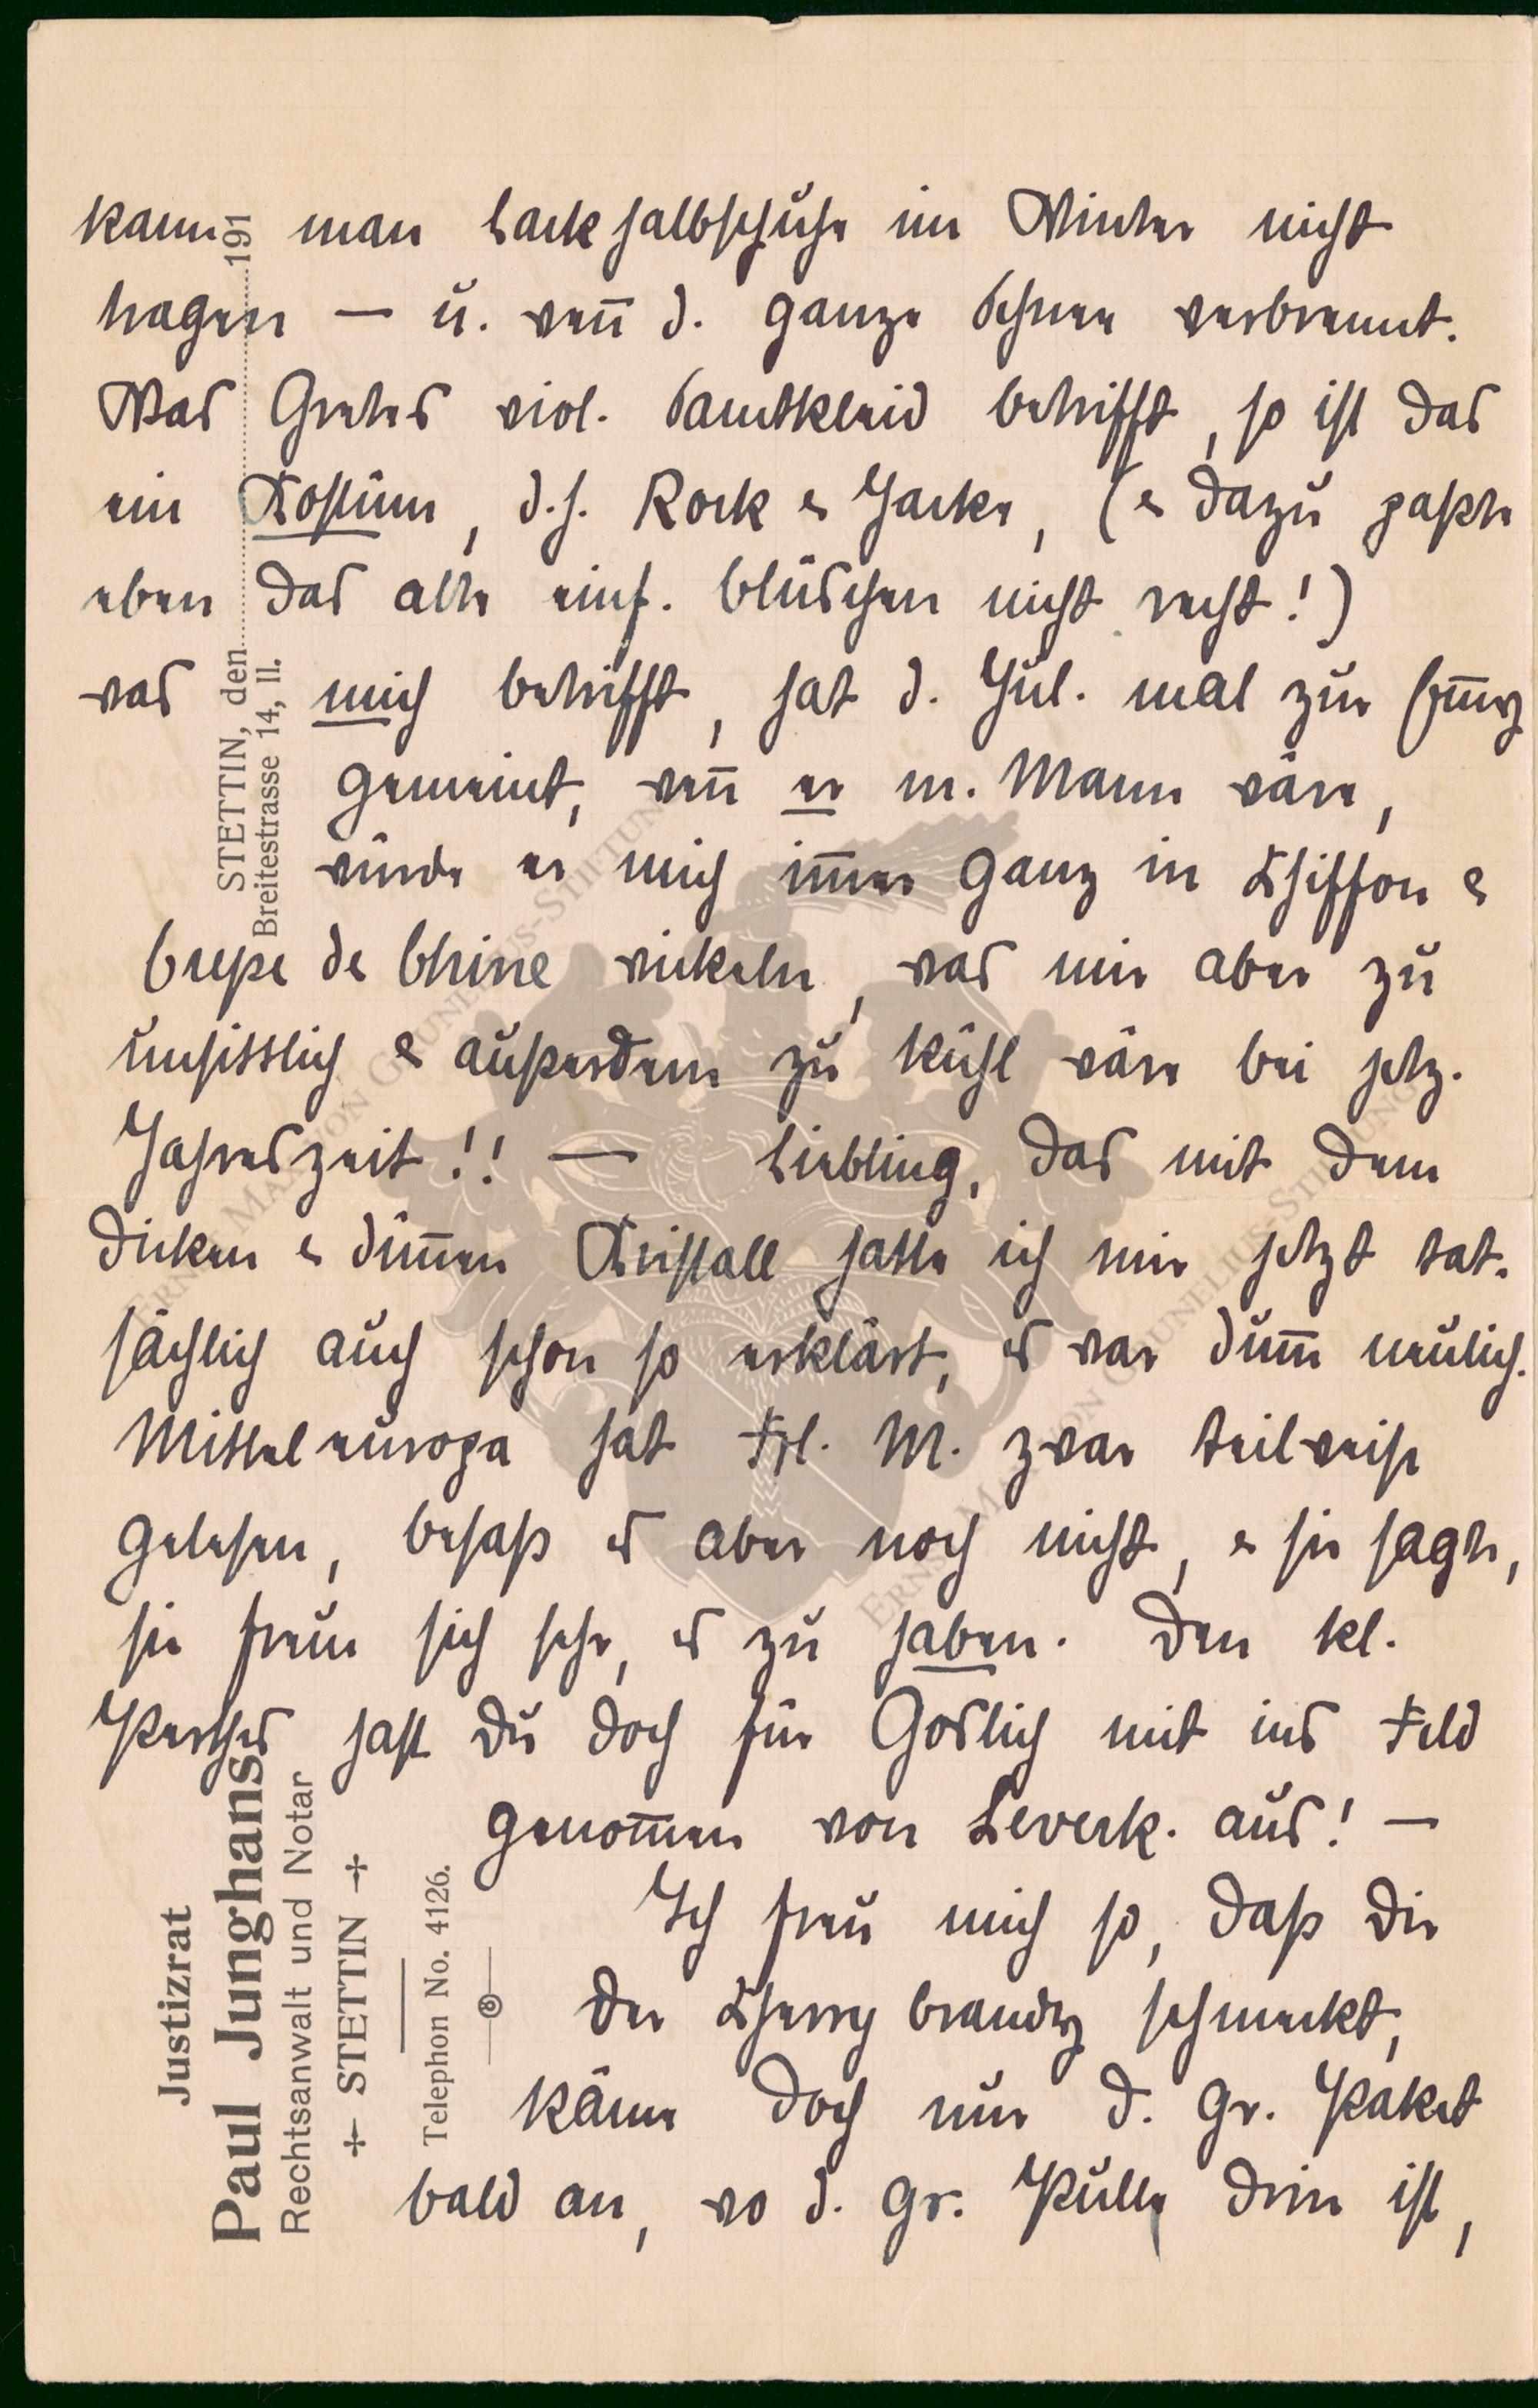 kann man Lackhalbschuhe im Winter nicht
tragen — u. weñ d. ganze Schnee verbrennt.
Was Gretes viol. Samtkleid betrifft, so ist das
ein Kostüm, d.h. Rock & Jacke, (& dazu passte
eben das alte einf. Blüschen nicht recht!)
was mich betrifft, hat d. Jul. mal zur
gemeint, weñ er m. Mann wäre,
würde er mich im̃er ganz in Chiffon &
Crepe de Chine wickeln, was mir aber zu
unsittlich & außerdem zu kühl wäre bei jetz.
Jahreszeit!! — Liebling, das mit dem
dicken & düñen Kristall hatte ich mir jetzt tat-
sächlich auch schon so erklärt, es war dum̃ neulich.
Mitteleuropa hat Frl. M. zwar teilweise
gelesen, besaß es aber noch nicht, & sie sagte,
sie freue sich sehr, es zu haben. Den kl.
Perthes hast Du doch für Goslich mit ins Feld
genom̃en von Leverk. aus! —
Ich freu mich so, daß Dir
der Cherry brandy schmeckt,
käme doch nur d. gr. Paket
bald an, wo d. gr. Pulle drin ist,
STETTIN, den 191
Breitestrasse 14, II.
Justizrat
Paul Junghans
Rechtsanwalt und Notar
STETTIN
Telephon No. 4126.
ERNST MARION GRUNELIUS-STIFTUNG
ERNST MARION GRUNELIUS-STIFTUNG